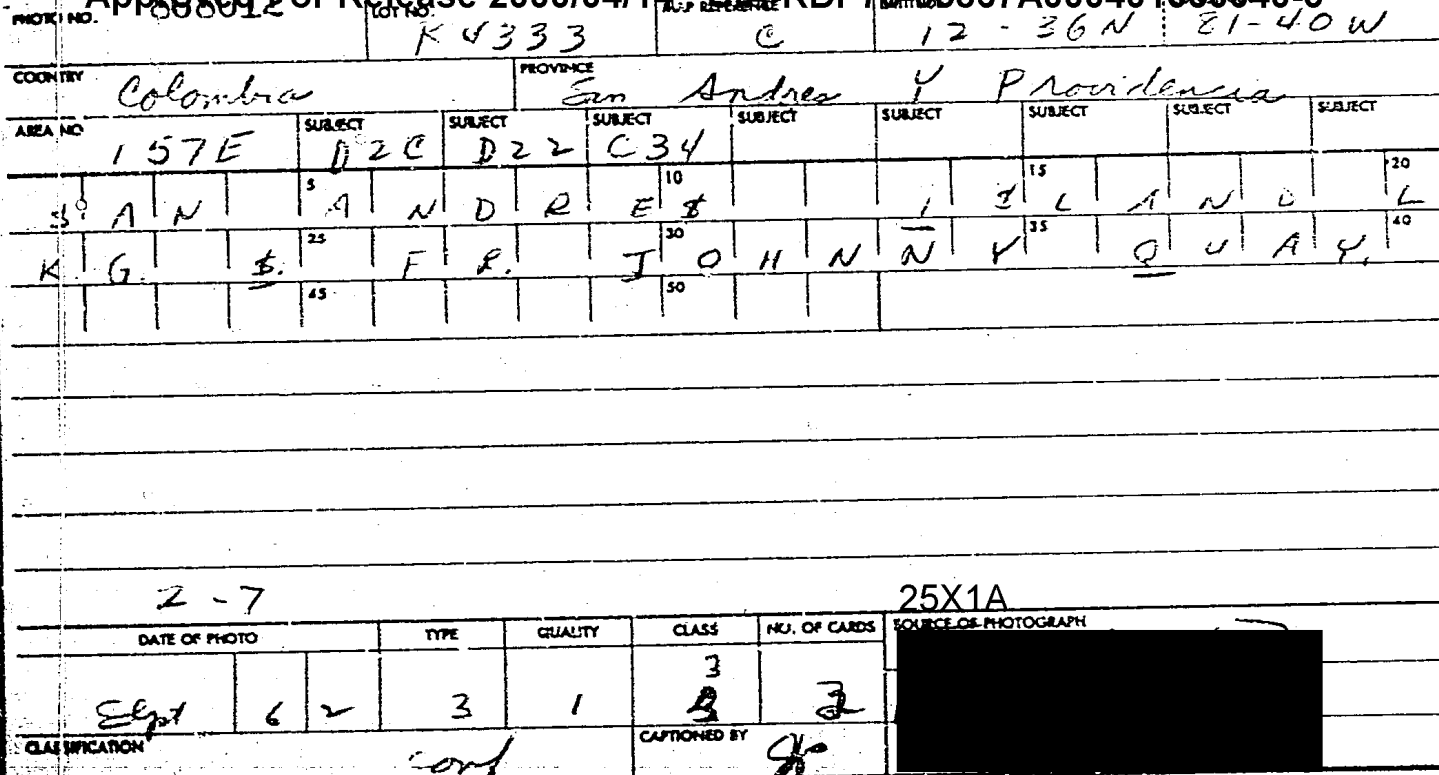 Approved For Release
PHOTO NO. LOT NO. K4333 C 12-36N 81-40W
COUNTRY Colombia PROVINCE San Andres Y Providencia
AREA NO 157E SUBJECT D2C SUBJECT D22 SUBJECT C34 SUBJECT SUBJECT SUBJECT SUBJECT SUBJECT
5 10 15 20
SAN ANDRES ISLAND L
25 30 35 40
KG. S. FR. JOHNNY QUAY.
45 50
2-7 25X1A
DATE OF PHOTO TYPE QUALITY CLASS NO. OF CARDS SOURCE OF PHOTOGRAPH
3
Sept 62 3 1 3
CLASSIFICATION conf CAPTIONED BY